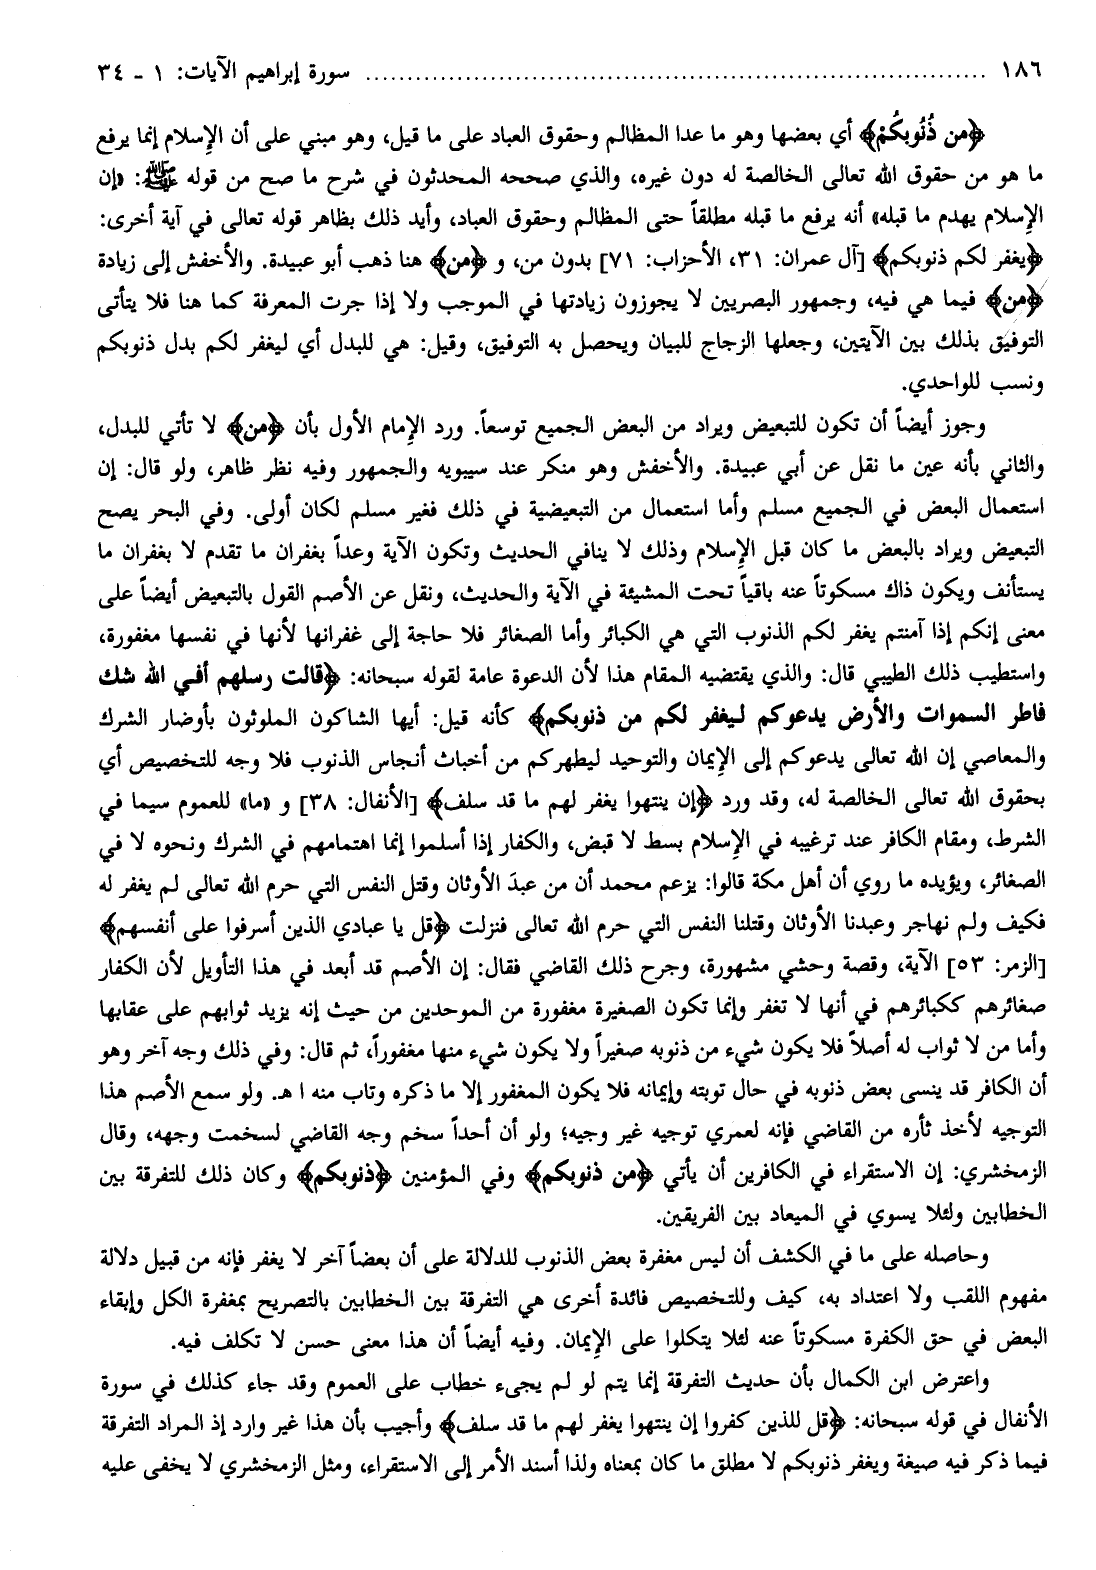 ١٨٦ ........................................................................... سورة إبراهيم الآيات: ١ - ٣٤
﴿من ذُنُوبكُمْ﴾ أي بعضها وهو ما عدا المظالم وحقوق العباد على ما قيل، وهو مبني على أن الإسلام إنما يرفع
ما هو من حقوق الله تعالى الخالصة له دون غيره، والذي صححه المحدثون في شرح ما صح من قوله ﷺ: «إن
الإسلام يهدم ما قبله» أنه يرفع ما قبله مطلقاً حتى المظالم وحقوق العباد، وأيد ذلك بظاهر قوله تعالى في آية أخرى:
﴿يغفر لكم ذنوبكم﴾ [آل عمران: ٣١، الأحزاب: ٧١] بدون من، و ﴿من﴾ هنا ذهب أبو عبيدة. والأخفش إلى زيادة
﴿من﴾ فيما هي فيه، وجمهور البصريين لا يجوزون زيادتها في الموجب ولا إذا جرت المعرفة كما هنا فلا يتأتى
التوفيق بذلك بين الآيتين، وجعلها الزجاج للبيان ويحصل به التوفيق، وقيل: هي للبدل أي ليغفر لكم بدل ذنوبكم
ونسب للواحدي.
وجوز أيضاً أن تكون للتبعيض ويراد من البعض الجميع توسعاً. ورد الإمام الأول بأن ﴿من﴾ لا تأتي للبدل،
والثاني بأنه عين ما نقل عن أبي عبيدة. والأخفش وهو منكر عند سيبويه والجمهور وفيه نظر ظاهر، ولو قال: إن
استعمال البعض في الجميع مسلم وأما استعمال من التبعيضية في ذلك فغير مسلم لكان أولى. وفي البحر يصح
التبعيض ويراد بالبعض ما كان قبل الإسلام وذلك لا ينافي الحديث وتكون الآية وعداً بغفران ما تقدم لا بغفران ما
يستأنف ويكون ذاك مسكوتاً عنه باقياً تحت المشيئة في الآية والحديث، ونقل عن الأصم القول بالتبعيض أيضاً على
معنى إنكم إذا آمنتم يغفر لكم الذنوب التي هي الكبائر وأما الصغائر فلا حاجة إلى غفرانها لأنها في نفسها مغفورة،
واستطيب ذلك الطيبي قال: والذي يقتضيه المقام هذا لأن الدعوة عامة لقوله سبحانه: ﴿قالت رسلهم أفي الله شك
فاطر السموات والأرض يدعوكم ليغفر لكم من ذنوبكم﴾ كأنه قيل: أيها الشاكون الملوثون بأوضار الشرك
والمعاصي إن الله تعالى يدعوكم إلى الإيمان والتوحيد ليطهركم من أخباث أنجاس الذنوب فلا وجه للتخصيص أي
بحقوق الله تعالى الخالصة له، وقد ورد ﴿إن ينتهوا يغفر لهم ما قد سلف﴾ [الأنفال: ٣٨] و «ما» للعموم سيما في
الشرط، ومقام الكافر عند ترغيبه في الإسلام بسط لا قبض، والكفار إذا أسلموا إنما اهتمامهم في الشرك ونحوه لا في
الصغائر، ويؤيده ما روي أن أهل مكة قالوا: يزعم محمد أن من عبدَ الأوثان وقتل النفس التي حرم الله تعالى لم يغفر له
فكيف ولم نهاجر وعبدنا الأوثان وقتلنا النفس التي حرم الله تعالى فنزلت ﴿قل يا عبادي الذين أسرفوا على أنفسهم﴾
[الزمر: ٥٣] الآية، وقصة وحشي مشهورة، وجرح ذلك القاضي فقال: إن الأصم قد أبعد في هذا التأويل لأن الكفار
صغائرهم ككبائرهم في أنها لا تغفر وإنما تكون الصغيرة مغفورة من الموحدين من حيث إنه يزيد ثوابهم على عقابها
وأما من لا ثواب له أصلاً فلا يكون شيء من ذنوبه صغيراً ولا يكون شيء منها مغفوراً، ثم قال: وفي ذلك وجه آخر وهو
أن الكافر قد ينسى بعض ذنوبه في حال توبته وإيمانه فلا يكون المغفور إلا ما ذكره وتاب منه ا هـ. ولو سمع الأصم هذا
التوجيه لأخذ ثأره من القاضي فإنه لعمري توجيه غير وجيه؛ ولو أن أحداً سخم وجه القاضي لسخمت وجهه، وقال
الزمخشري: إن الاستقراء في الكافرين أن يأتي ﴿من ذنوبكم﴾ وفي المؤمنين ﴿ذنوبكم﴾ وكان ذلك للتفرقة بين
الخطابين ولئلا يسوي في الميعاد بين الفريقين.
وحاصله على ما في الكشف أن ليس مغفرة بعض الذنوب للدلالة على أن بعضاً آخر لا يغفر فإنه من قبيل دلالة
مفهوم اللقب ولا اعتداد به، كيف وللتخصيص فائدة أخرى هي التفرقة بين الخطابين بالتصريح بمغفرة الكل وإبقاء
البعض في حق الكفرة مسكوتاً عنه لئلا يتكلوا على الإيمان. وفيه أيضاً أن هذا معنى حسن لا تكلف فيه.
واعترض ابن الكمال بأن حديث التفرقة إنما يتم لو لم يجىء خطاب على العموم وقد جاء كذلك في سورة
الأنفال في قوله سبحانه: ﴿قل للذين كفروا إن ينتهوا يغفر لهم ما قد سلف﴾ وأجيب بأن هذا غير وارد إذ المراد التفرقة
فيما ذكر فيه صيغة ويغفر ذنوبكم لا مطلق ما كان بمعناه ولذا أسند الأمر إلى الاستقراء، ومثل الزمخشري لا يخفى عليه